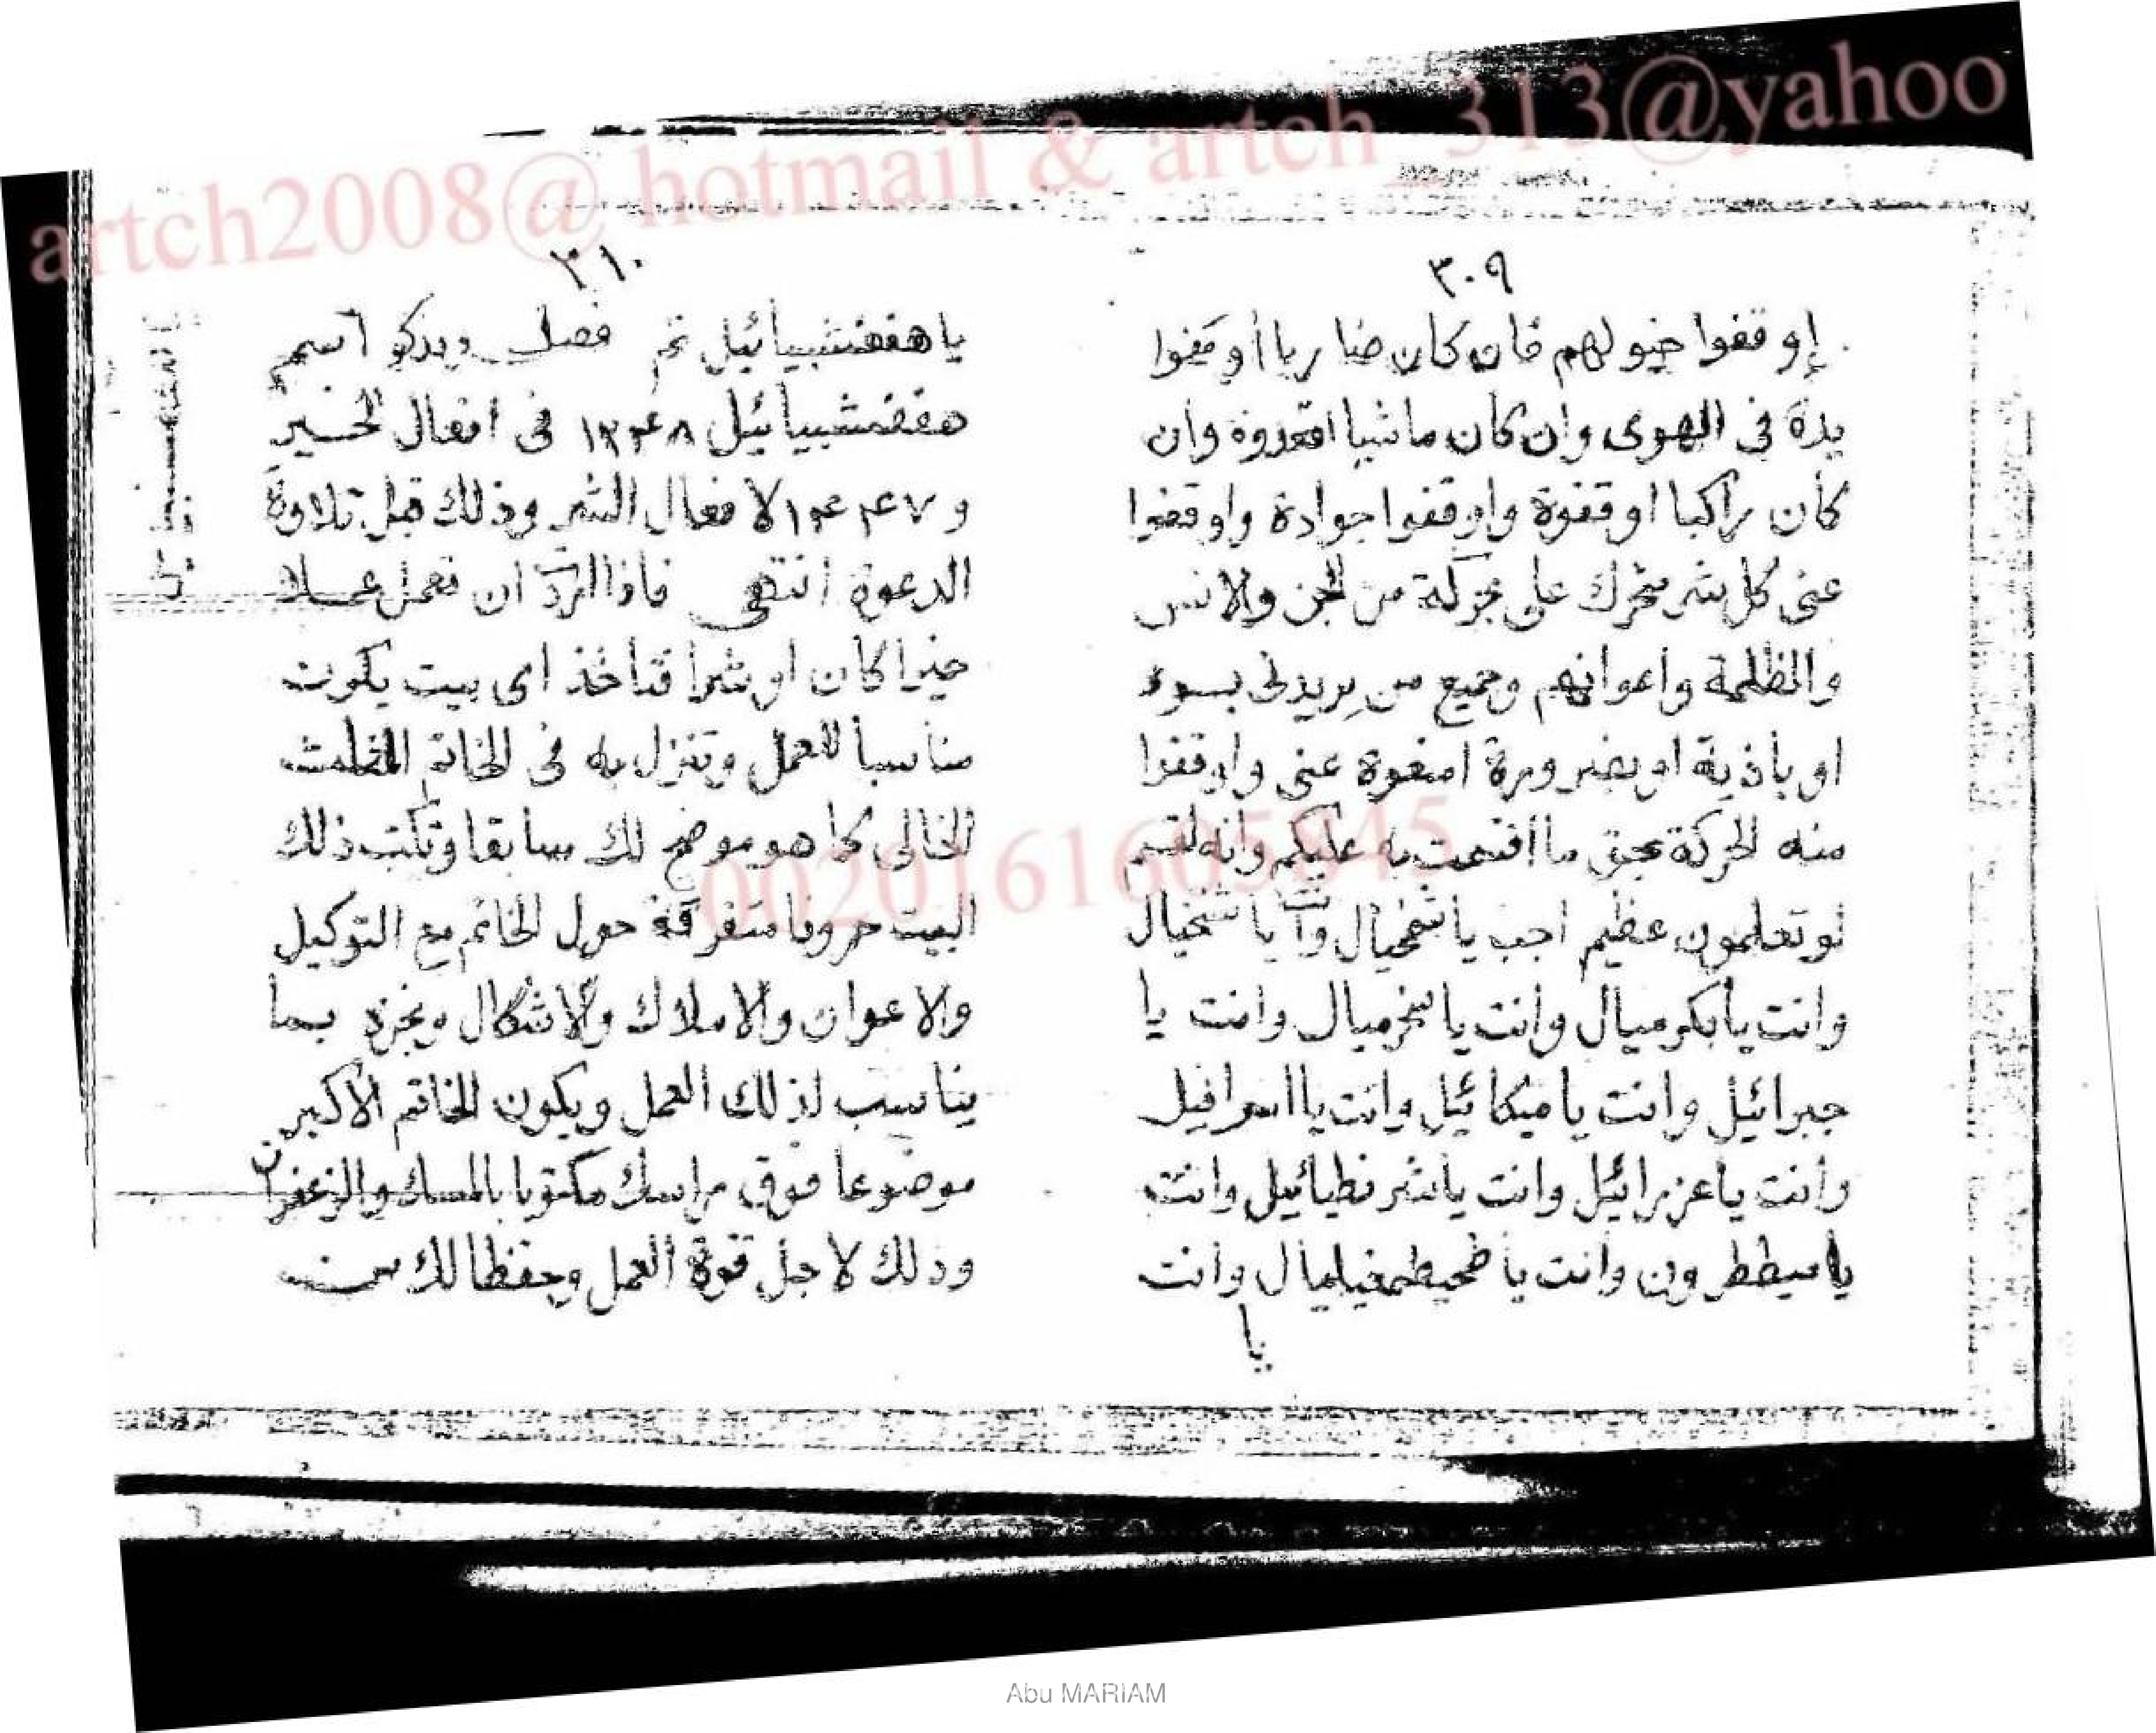 artch2008@ hotmail & artch_313@yahoo
٣٠٩
اوقفوا خيولهم فان كان ضاربا أوقفوا
يدة فى الهوى وان كان ماشيا اقعدوة وان
كان راكبا اوقفوة واوقفوا جوادة واوقفوا
عنى كل شر متحرك على حركة من الجن والانس
والظلمة واعوانهم وجميع من يريدنى بسوء
او باذية او بضرورة امنعوة عنى واوقفوا
منه الحركة بحق ما اقسمت به عليكم وانه لقسم
لو تعلمون عظيم اجب يا
وانت يا وانت يا وانت يا
جبرائيل وانت يا ميكائيل وانت يا اسرافيل
وانت يا عزرائيل وانت يا وانت
يا ميططرون وانت يا وانت
يا
٣١٠
تم فصل ويذكر اسم
فى افعال الخير
لافعال الشر وذلك قبل تلاوة
الدعوة انتهى فاذا اردت ان تعمل عملك
خيرا كان او شرا فتاخذ اى بيت يكون
مناسبا للعمل وتنزل به فى الخاتم المثلث
الخالى كما هو موضح لك سابقا وتكتب ذلك
البيت حروفا متفرقة حول الخاتم مع التوكيل
والاعوان والاملاك والاشكال وبخره بما
يناسب لذلك العمل ويكون الخاتم الاكبر
موضوعا فوق راسك مكتوبا بالمسك والزعفران
وذلك لاجل قوة العمل وحفظا لك من
00201616605845
Abu MARIAM